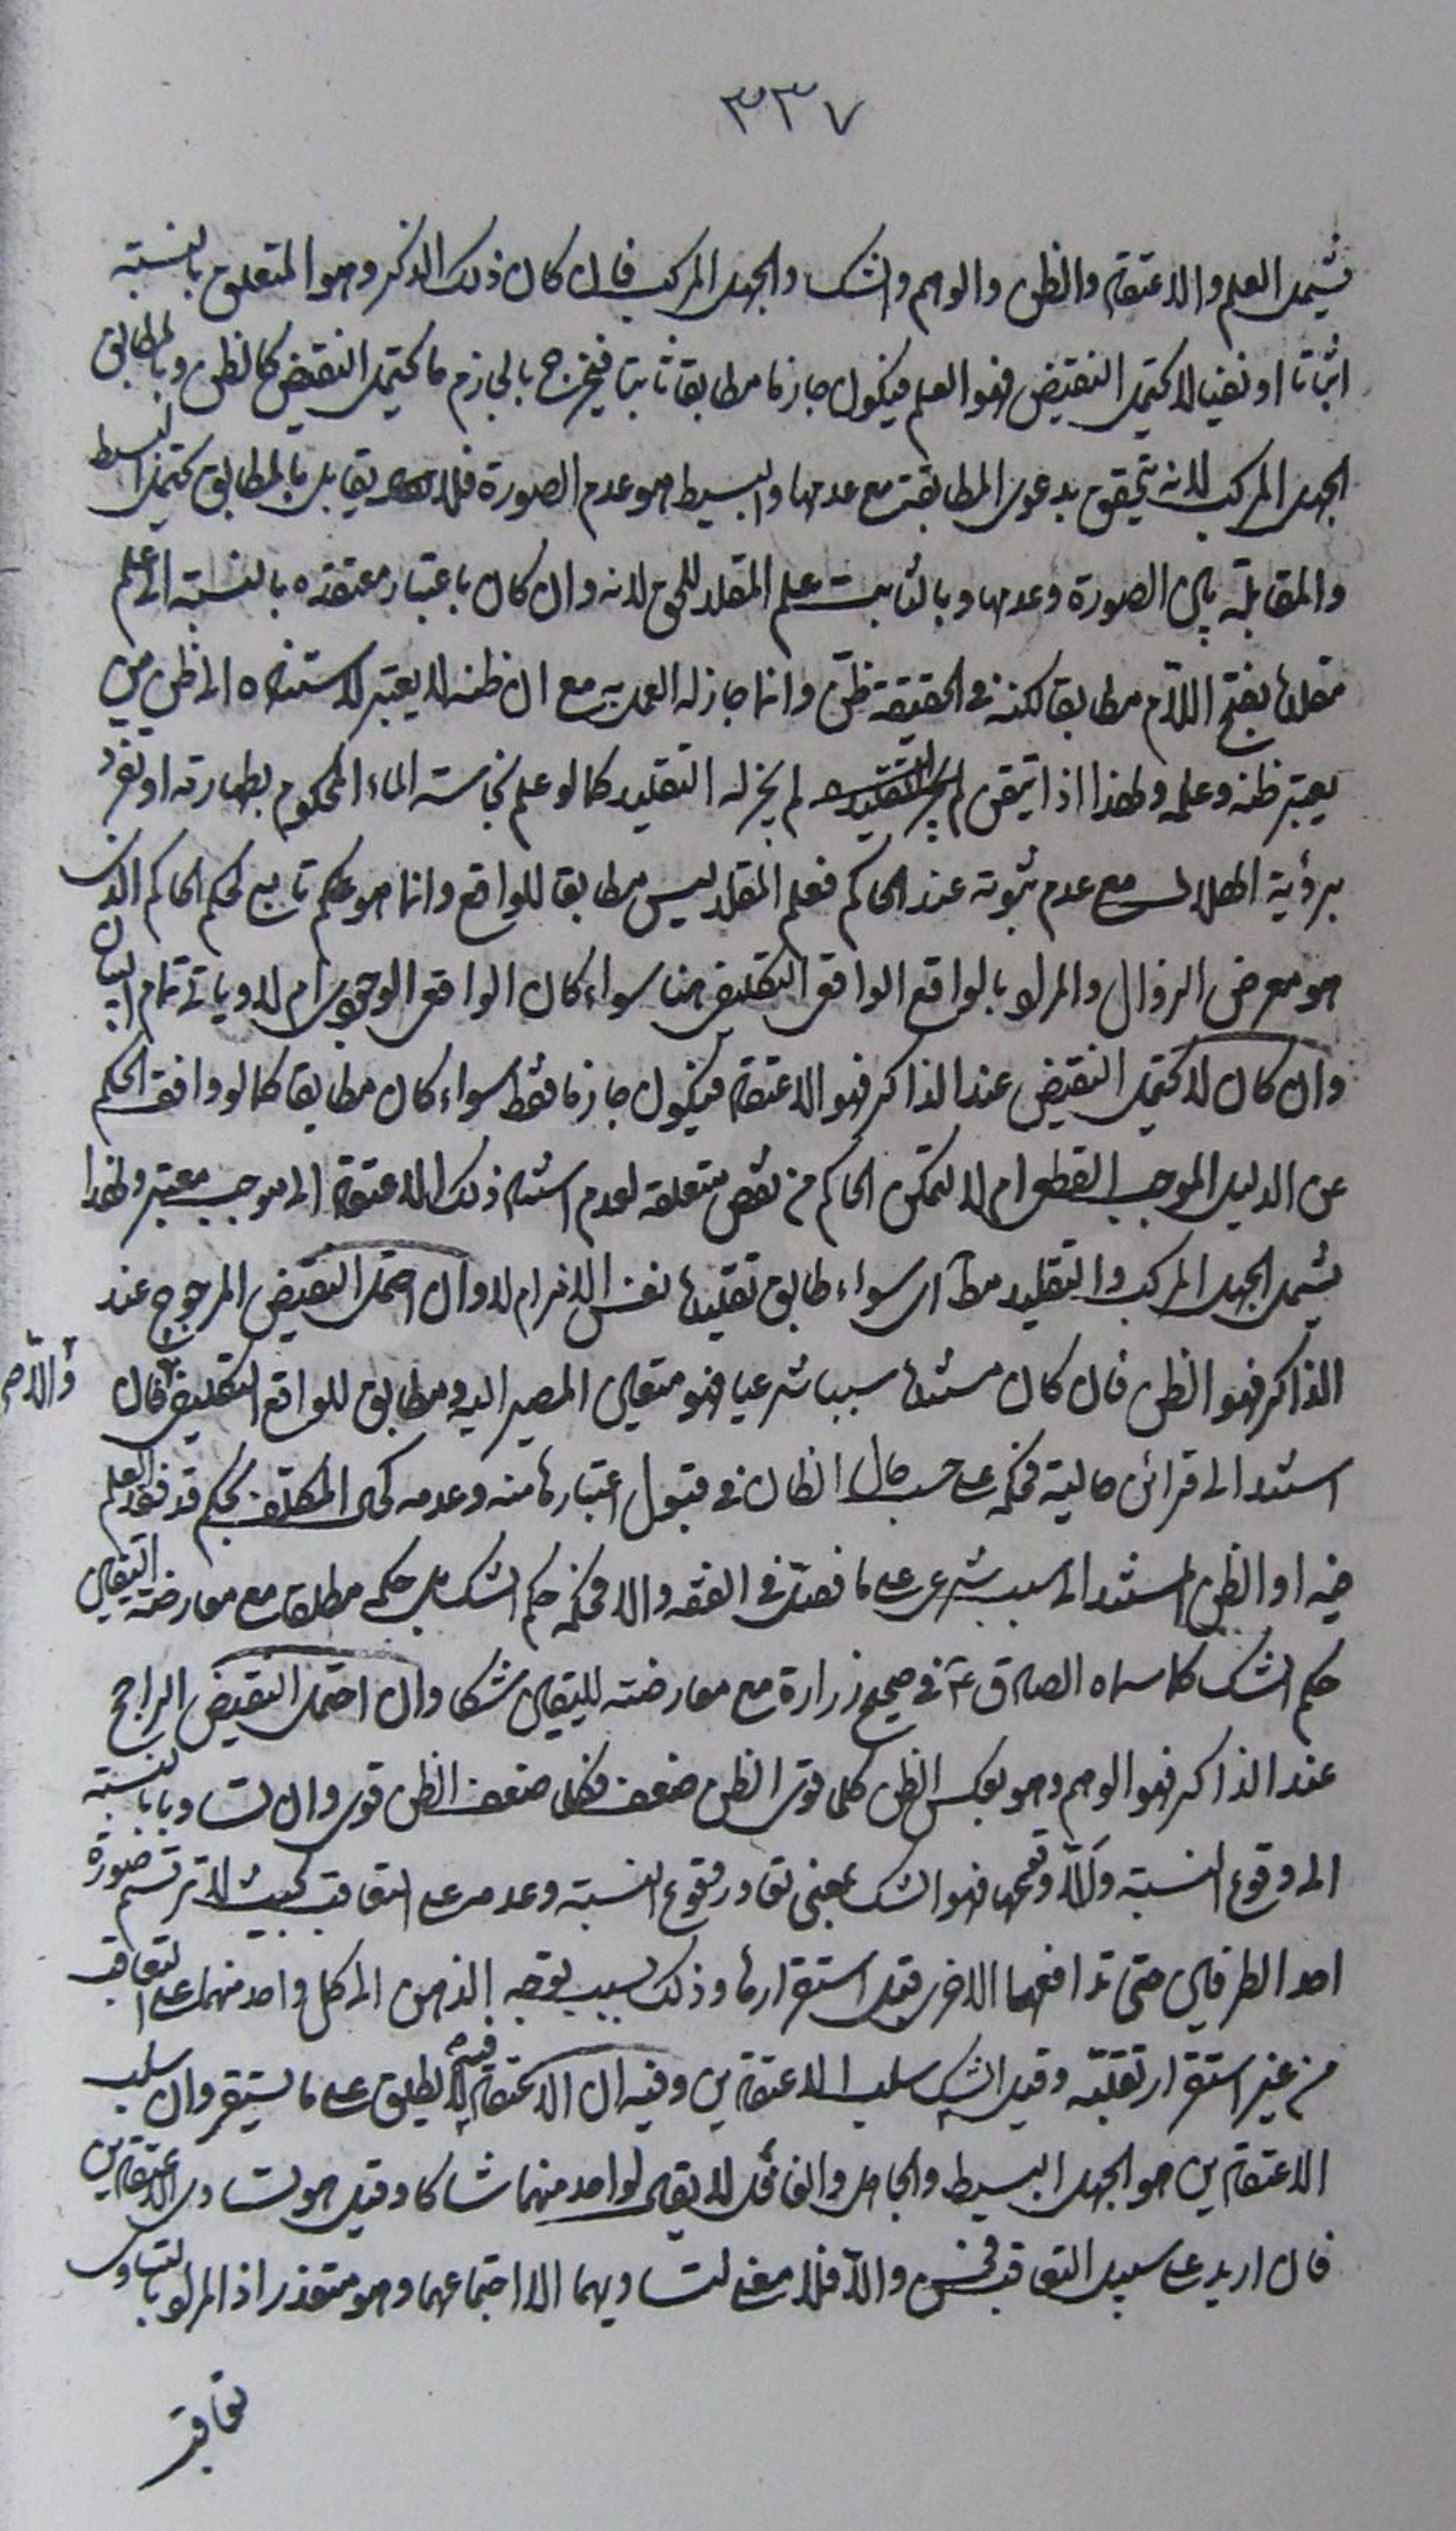 ٣٣٧
يشمل العلم والاعتقاد والظن والوهم والشك والجهل المركب فان كان ذلك الذكر وهو المتعلق بالنسبة
اثباتا او نفيا لا يحتمل النقيض فهو العلم فيكون جازما مطابقا ثابتا فيخرج بالجازم ما يحتمل النقيض كالظن وبالمطابق
الجهل المركب لانه يتحقق بدعوى المطابقة مع عدمها والبسيط هو عدم الصورة فلا يقابل بالمطابق كتقابل البسيط
والمقابلة بين الصورة وعدمها وبالثابت علم المقلد للحق لانه وان كان باعتبار معتقده بالنسبة الى علم
مقلده بفتح اللام مطابقا لكنه في الحقيقة ظن وانما جاز له العمل به مع ان ظنه لا يعتبر لاستناده الى ظن من
يعتبر ظنه وعلمه ولهذا اذا تيقن لم يجز له التقليد كما لو علم نجاسة الماء المحكوم بطهارته او تفرد
برؤية الهلال مع عدم ثبوته عند الحاكم فعلم المقلد ليس مطابقا للواقع وانما هو حكم تابع لحكم الحاكم الذى
هو معرض الزوال والمراد بالواقع الواقعى التكليفى هنا سواء كان الواقعى الوجودى ام لا وياتى تمام البيان
وان كان لا يحتمل النقيض عند الذاكر فهو الاعتقاد فيكون جازما فقط سواء كان مطابقا كما لو وافق الحكم
عن الدليل الموجب القطع ام لا لتمكن الحاكم من نقض متعلقه لعدم استناد ذلك الاعتقاد الى موجب معتبر ولهذا
يشمل الجهل المركب والتقليد مط اى سواء طابق تقليده نفس الامر ام لا وان احتمل النقيض المرجوح عند
الذاكر فهو الظن فان كان مستنده سببا شرعيا فهو متعين المصير اليه ومطابق للواقع التكليفى والا فان
استند الى قرائن حالية فحكمه على حسب حال الظان في قبول اعتبارها منه وعدمه كحال المكلف بحكم قد فقد العلم
فيه او الظن المستند الى سبب شرعى على ما فصل في الفقه والا فحكمه حكم الشك بل حكمه مطلقا مع معارضة اليقين
حكم الشك كما سماه الصادق ع في صحيح زرارة مع معارضته لليقين شكا وان احتمل النقيض الراجح
عند الذاكر فهو الوهم وهو بعكس الظن كلما قوى الظن ضعف فكلما ضعف الظن قوى وان تساويا بالنسبة
الى وقوع النسبة ولا وقوعها فهو الشك بمعنى تعاور وقوع النسبة وعدمه على التعاقب بحيث لا ترتسم صورة
احد الطرفين حتى تدافعها الاخرى قبل استقرارها وذلك بسبب توجه الذهن الى كل واحد منهما على التعاقب
من غير استقرار تقلبه وقيل الشك سلب الاعتقادين وفيه ان الاعتقاد لا يطلق على ما يستقر وان سلب
الاعتقادين هو الجهل البسيط والجاهل والغافل لا يقال لواحد منهما شاكا وقيل هو تساوى الاعتقادين
فان اريد على سبيل التعاقب فحسن والا فلا معنى لتساويهما الا اجتماعهما وهو متعذر اذ المراد بالتساوى
تعاقب